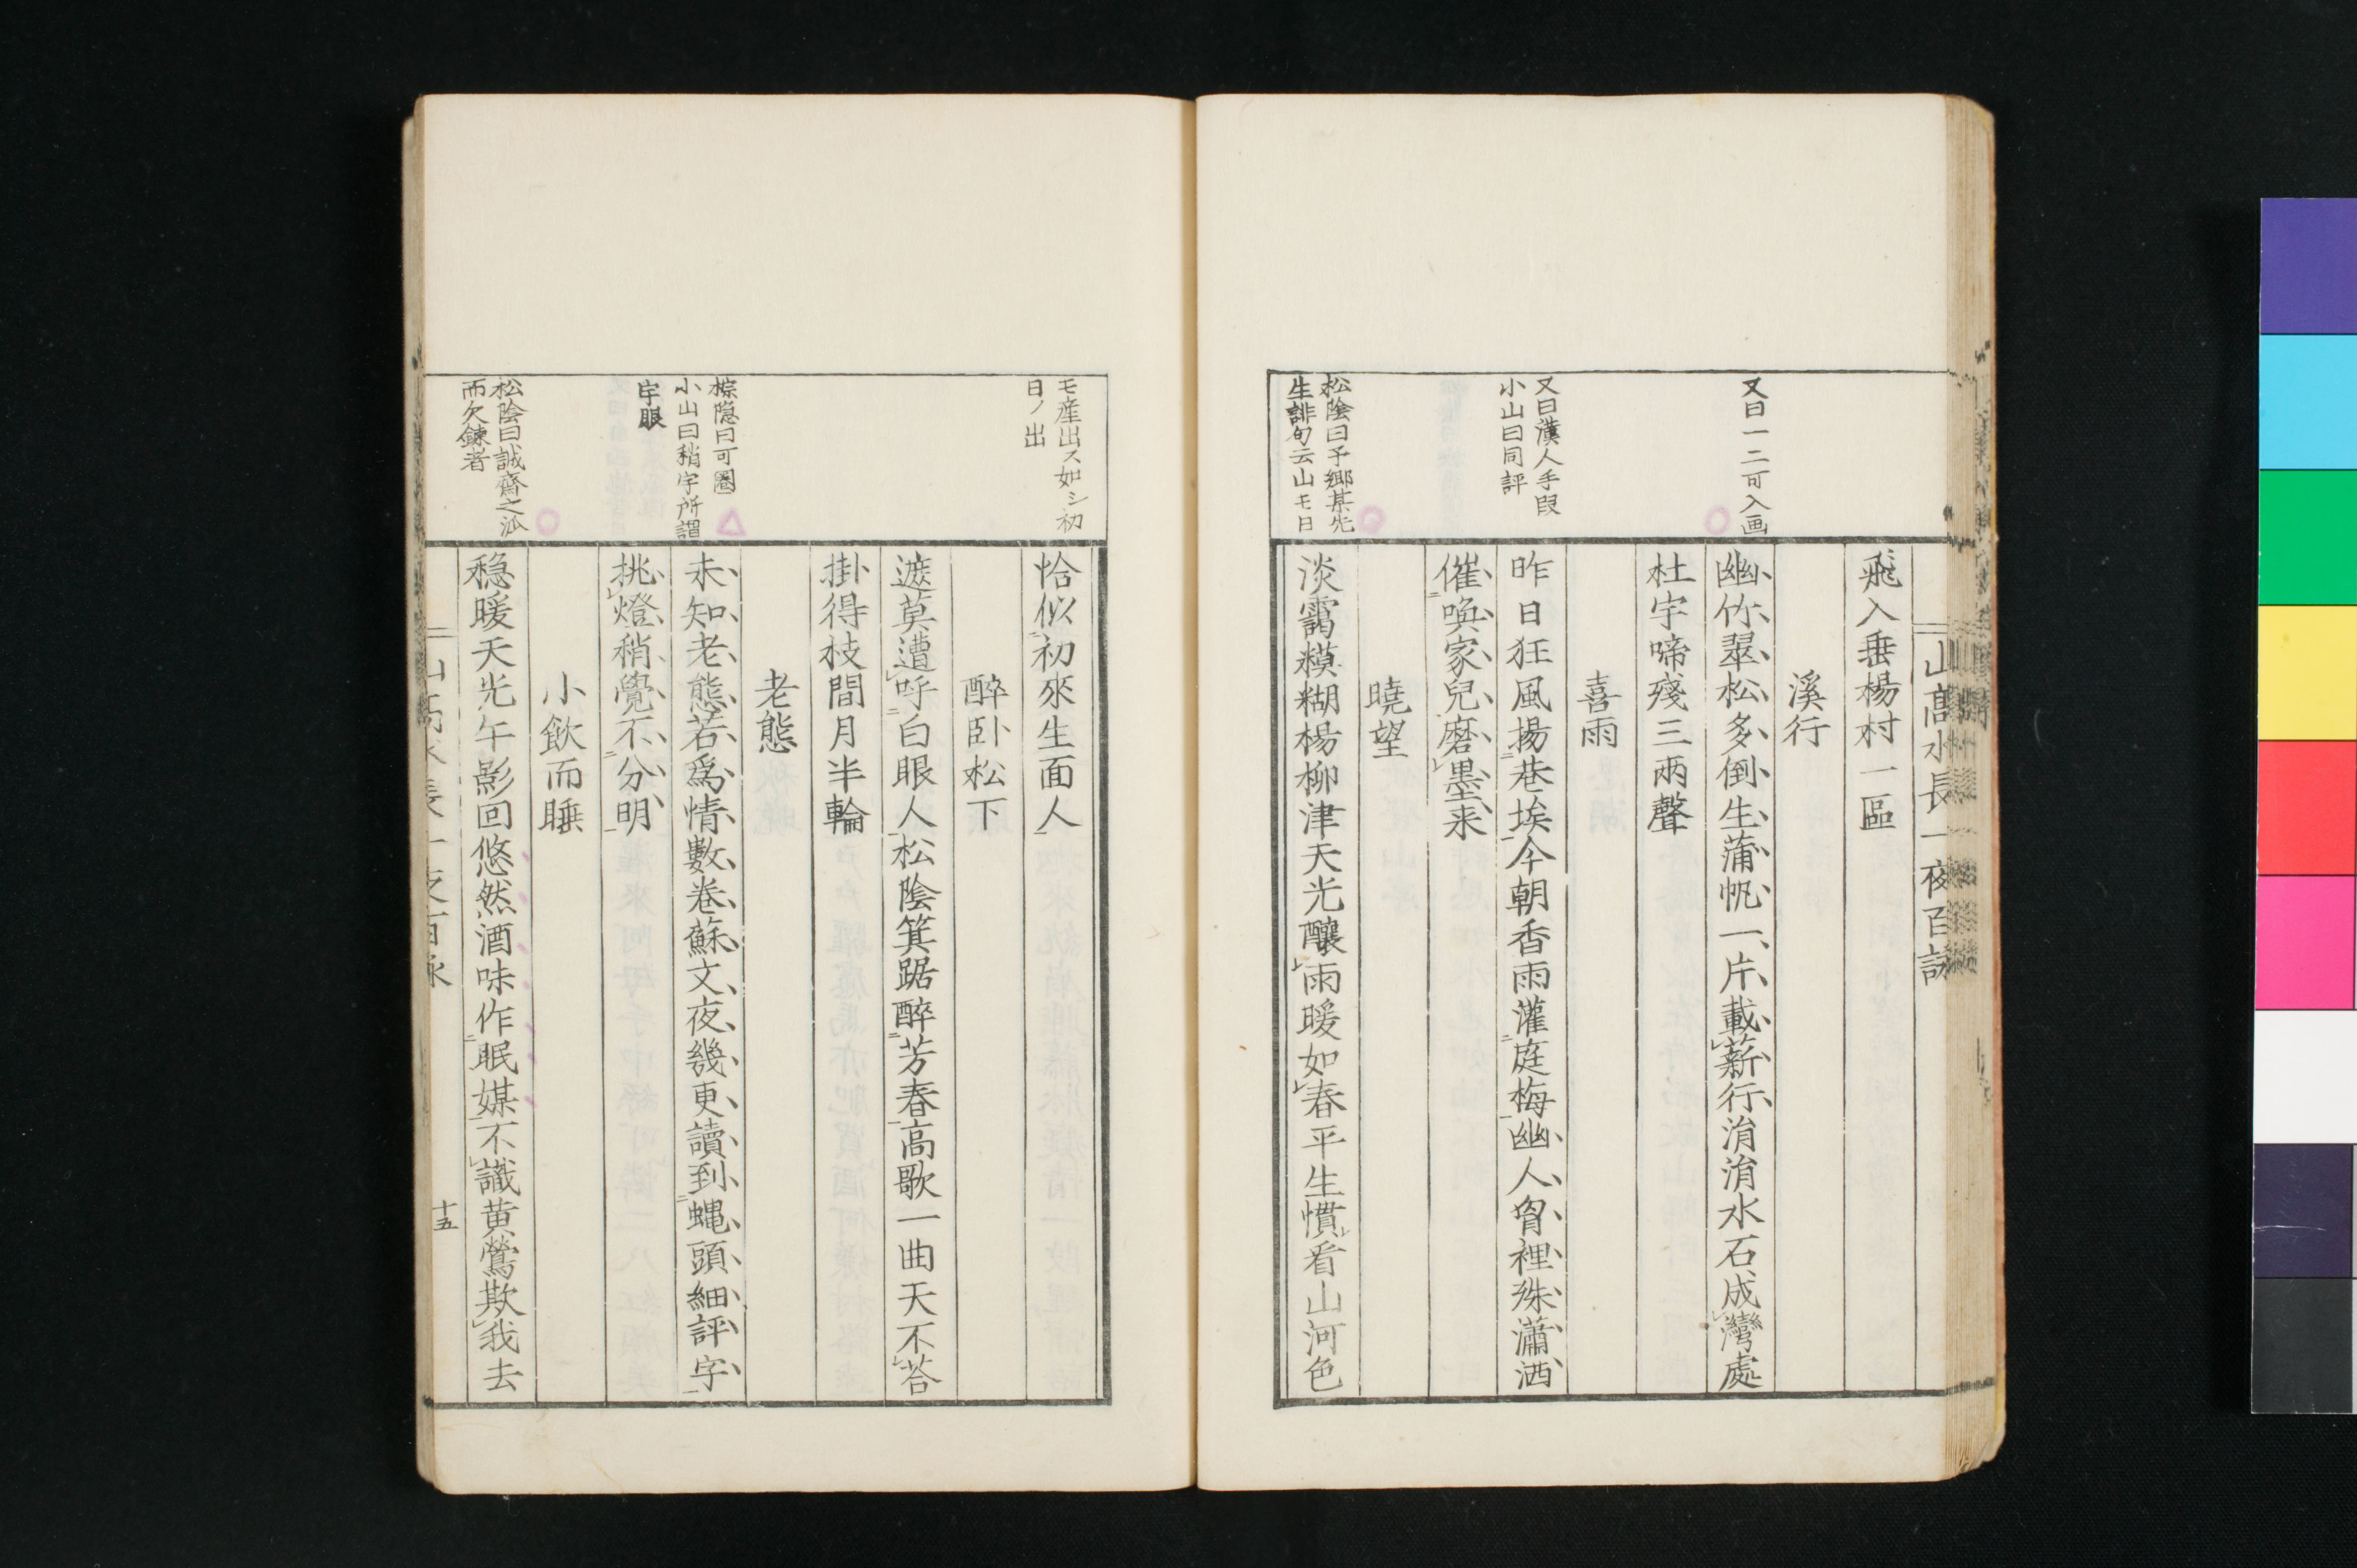 山髙水長一夜百詠
又曰一二可入画
又曰漢人手段
小山曰同評
松陰曰予郷某先
生誹句云山モ日
飛入垂楊村一區
溪行
幽竹翠松多倒生蒲帆一片載薪行涓涓水石成灣處
杜宇啼殘三兩聲
喜雨
昨日狂風揚巷埃今朝香雨灌庭梅幽人胷裡殊瀟洒
催喚家兒磨墨来
曉望
淡靄糢糊楊柳津天光釀雨暖如春平生慣看山河色
モ産出ス如シ初
日ノ出
棕隱曰可圏
小山曰稍字所謂
字眼
松陰曰誠齊之派
而欠鍊者
恰似初來生面人
醉卧松下
遮莫遭呼白眼人松陰箕踞醉芳春高歌一曲天不荅
掛得枝間月半輪
老態
未知老態若爲情數卷蘇文夜幾更讀到蠅頭細評字
挑燈稍覺不分明
小飲而睡
穏暖天光午影回悠然酒味作眠媒不識黄鶯欺我去
十五